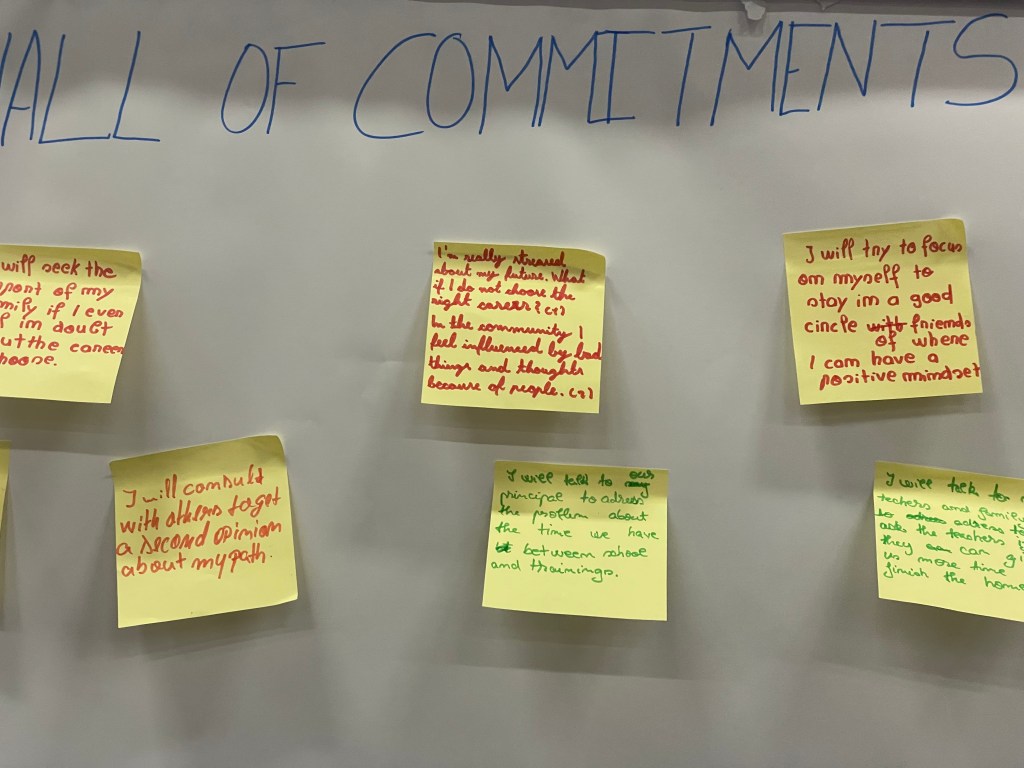 WALL OF COMMITMENTS
will seek the
pport of my
mily if I even
f im doubt
ut the caneen
hoose.
I'm really stressed
about my future. What
if I do not choose the
right career? (1)
In the community I
feel influenced by bad
things and thoughts
because of people. (2)
I will try to focus
om myself to
stay im a good
cincle with fniemds
of whene
I cam have a
positive mimdset
I will comsult
with others to get
a second opimiom
about my path.
I will talk to our
primcipal to adress
the problem about
the time we have
betweem school
and thaimimgs.
I will talk to
teachers amd famil
to adress
ask the teachers
they can gi
us more time
fimish the home